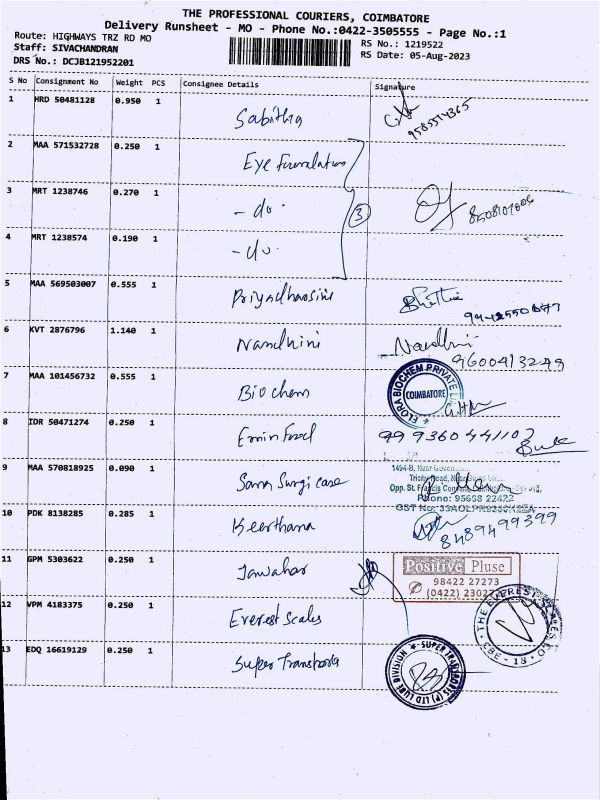 THE PROFESSIONAL COURIERS, COIMBATORE
Delivery Runsheet - MO - Phone No.:0422-3505555 - Page No.:1
Route: HIGHWAYS TRZ RD MO
RS No.: 1219522
Staff: SIVACHANDRAN
RS Date: 05-Aug-2023
DRS No.: DCJB121952201
S No Consignment No Weight PCS Consignee Details Signature
1 HRD 50481128 0.950 1 Sabitha
9585514365
2 MAA 571532728 0.250 1 Eye Foundation
3 MRT 1238746 0.270 1 - do - 3
4 MRT 1238574 0.190 1 - do -
5 MAA 569503007 0.555 1 Priyadhaosini
6 KVT 2876796 1.140 1 Nandhini Nandhini
9600413279
7 MAA 101456732 0.555 1 Biochem
FLORA BIOCHEM PRIVATE
COIMBATORE
8 IDR 50471274 0.250 1 Emin Food
9 MAA 570818925 0.090 1 Sama Surgi case
1494-B, Near
Trichy Road,
Opp. St. Francis
Phone: 95668 22422
GST No:
10 PDK 8138285 0.285 1 Keerthana
8489499399
11 GPM 5303622 0.250 1 Jawahar
Positive Pluse
98422 27273
(0422)
12 VPM 4183375 0.250 1 Everest Scales
THE EVEREST SCALES CO.
CBE - 18
13 EDQ 16619129 0.250 1 Super Transports
SUPER TRANSPORTS (P) LTD LUBE DIVISION